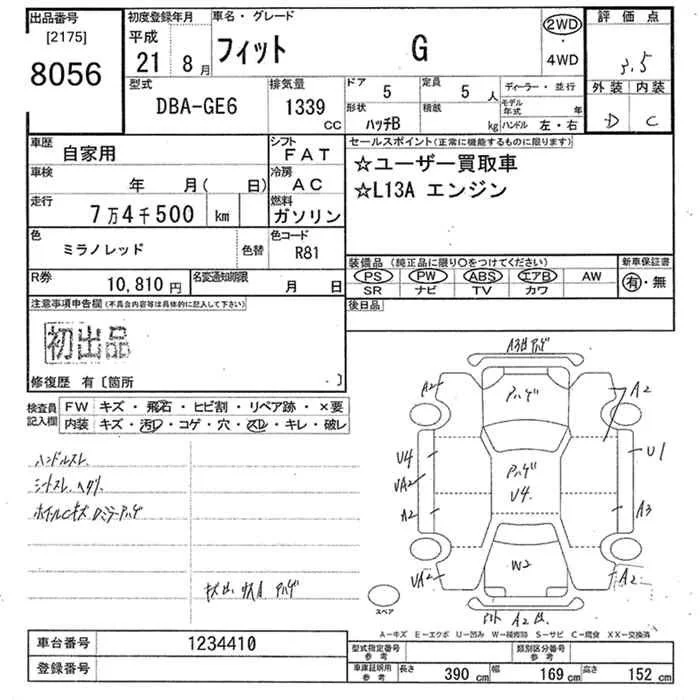 出品番号 初度登録年月 車名・グレード 評価点
[2175] 平成 フィット G 2WD・4WD 3.5
8056 21 8月
型式 排気量 ドア 5 定員 5人 ディーラー・並行 外装 内装
DBA-GE6 1339 CC 形状 ハッチB 積載 kg モデル年式 年 ハンドル 左・右 D C
車歴 自家用 シフト FAT セールスポイント(正常に機能するものに限ります)
車検 年 月( 日) 冷房 AC ☆ユーザー買取車
走行 7万4千500 km 燃料 ガソリン ☆L13A エンジン
色 ミラノレッド 色替 色コード R81
装備品 (純正品に限り○をつけてください) 新車保証書
R券 10,810円 名変通知期限 月 日 PS PW ABS エアB AW 有・無
SR ナビ TV カワ
注意事項申告欄(不具合内容等は具体的に記入して下さい) 後日品
初出品
修復歴 有〔箇所 〕
検査員記入欄 FW キズ・飛石・ヒビ割・リペア跡・×要
内装 キズ・汚レ・コゲ・穴・スレ・キレ・破レ
ハンドルスレ
シートスレ ヘタリ
ホイルCキズ Dミラーアハゲ
A2 アハゲ A2
U4 U1
UA2 アハゲ
U4
A2 A3
W2
UA2 A2
スペア
A2
A－キズ E－エクボ U－凹み W－補修跡 S－サビ C－腐食 XX－交換済
車台番号 1234410
登録番号
型式指定番号 参考 類別区分番号 参考
車庫証明用 参考 長さ 390 cm 幅 169 cm 高さ 152 cm